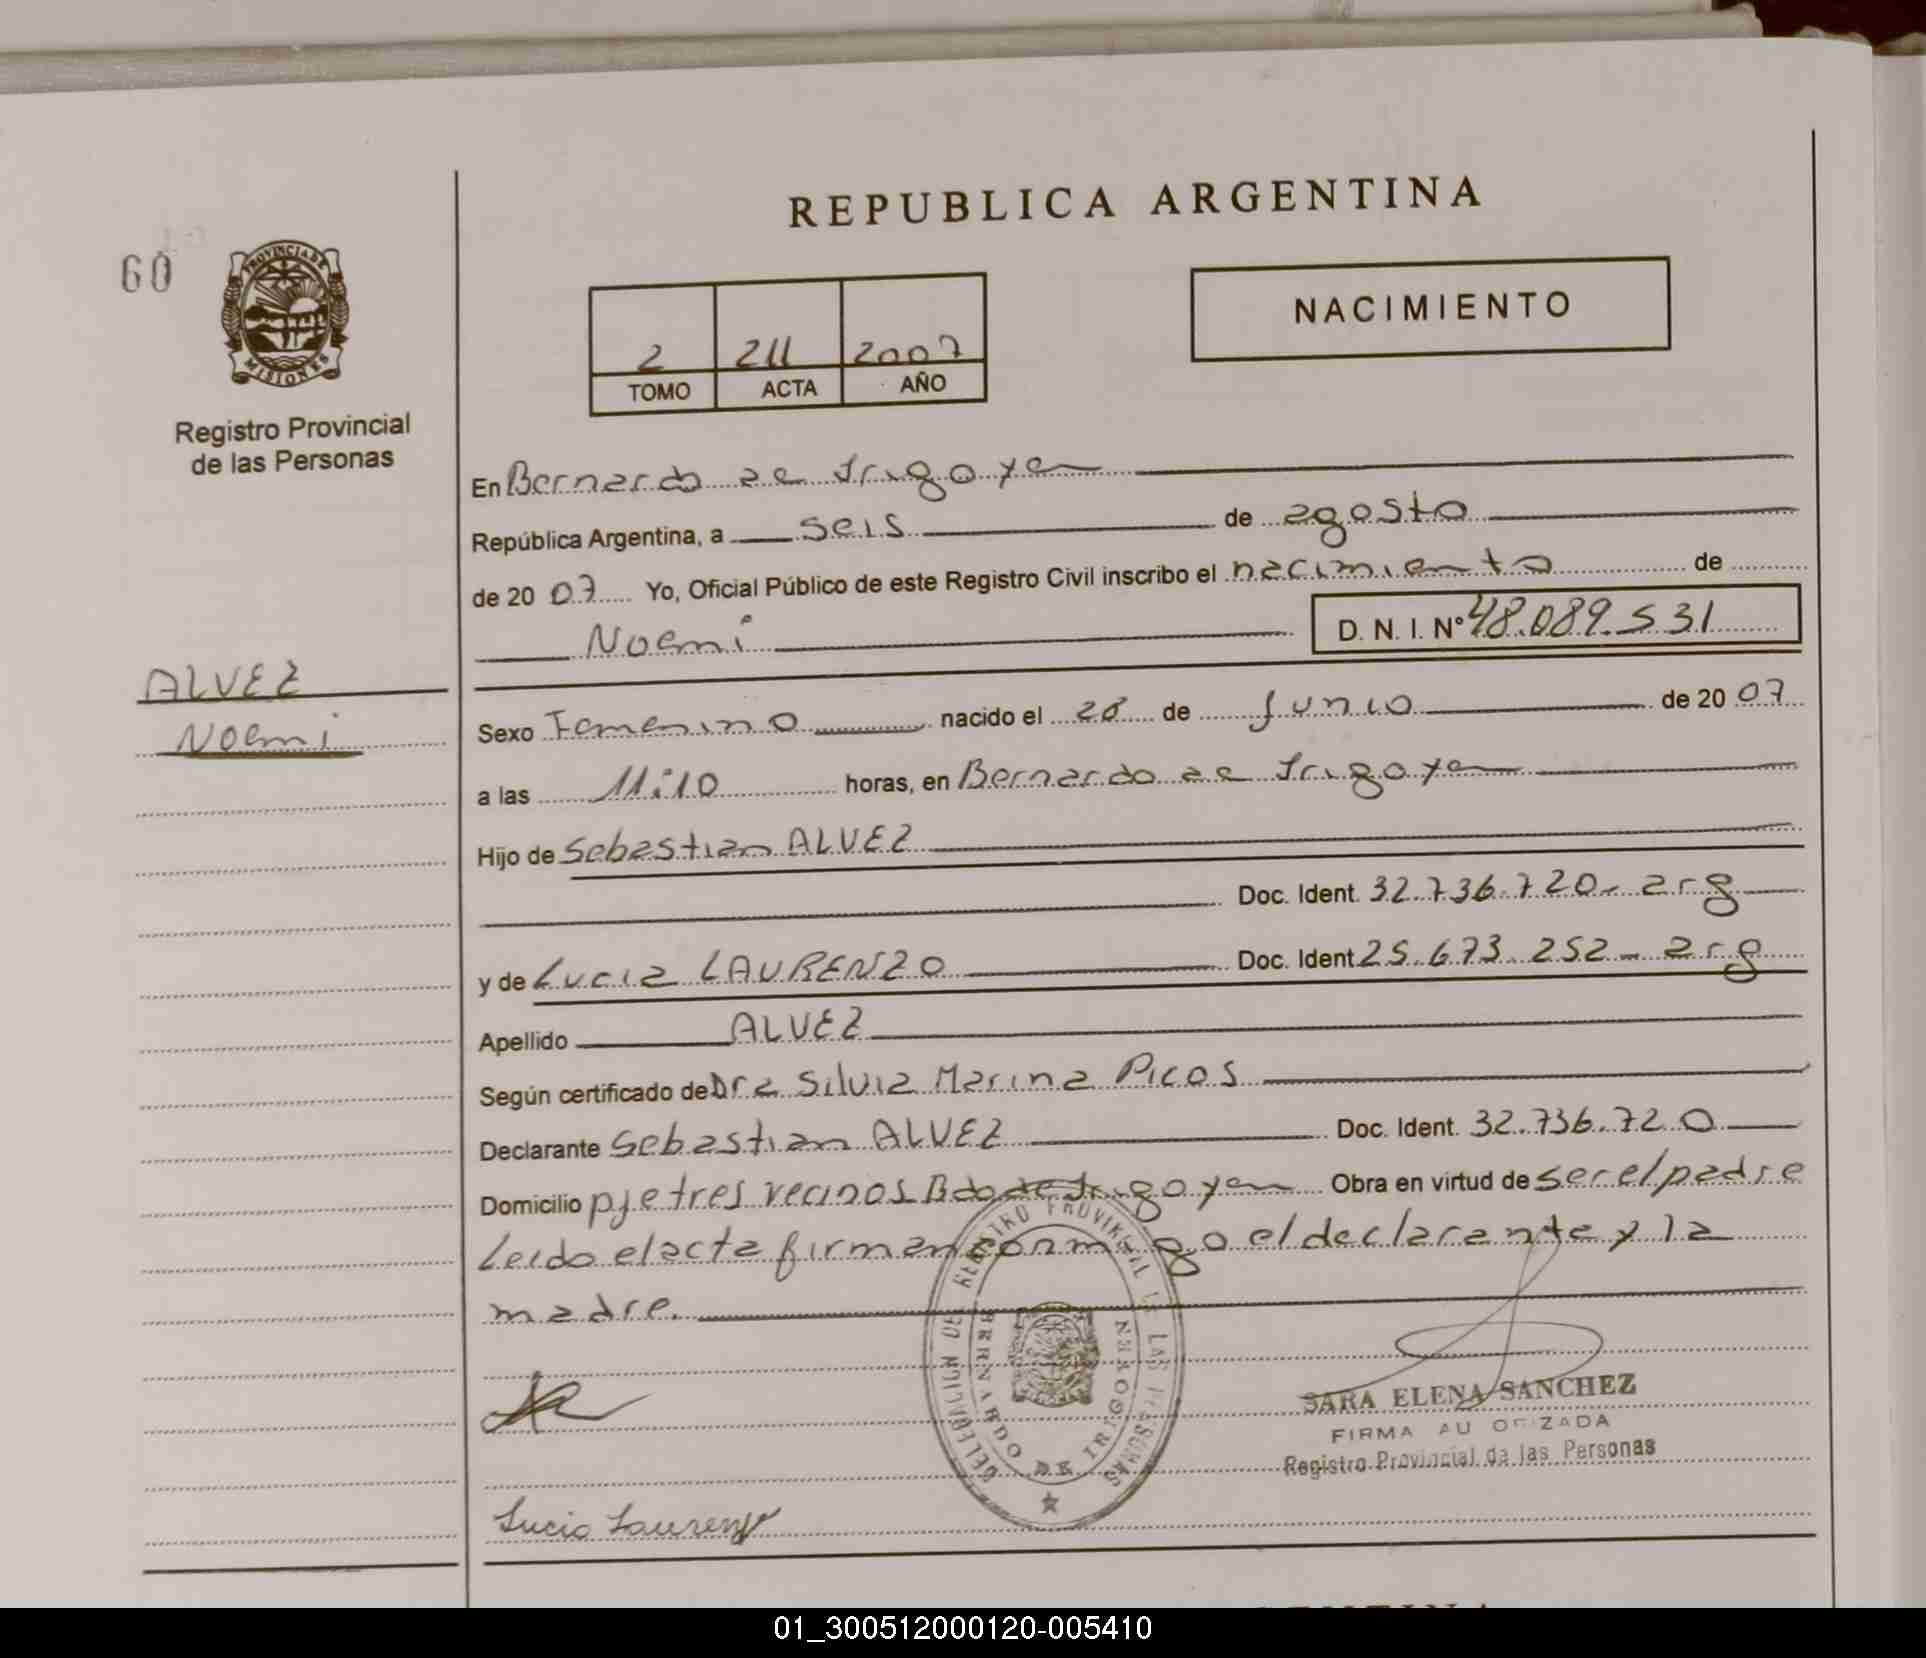 REPUBLICA ARGENTINA
60
PROVINCIA DE
MISIONES
NACIMIENTO
2 211 2007
TOMO ACTA AÑO
Registro Provincial
de las Personas
En Bernardo de Irigoyen
República Argentina, a seis de agosto
de 20 07 Yo, Oficial Público de este Registro Civil inscribo el nacimiento de
Noemi D. N. I. Nº 48.089.531
ALVEZ
Noemi
Sexo Femenino nacido el 28 de Junio de 20 07
a las 11:10 horas, en Bernardo de Irigoyen
Hijo de Sebastian ALVEZ
Doc. Ident. 32.736.720- arg
y de Lucia LAURENZO Doc. Ident 25.673.252- arg
Apellido ALVEZ
Según certificado de Dra Silvia Marina Picos
Declarante Sebastian ALVEZ Doc. Ident. 32.736.720
Domicilio pje tres vecinos Bdo de Irigoyen Obra en virtud de ser el padre
Leido el acta firman conmigo el declarante y la
madre.
DELEGACION DEL REGISTRO PROVINCIAL DE LAS PERSONAS
BERNARDO DE IRIGOYEN
SARA ELENA SANCHEZ
FIRMA AUTORIZADA
Registro Provincial de las Personas
Lucia Laurenzo
01_300512000120-005410